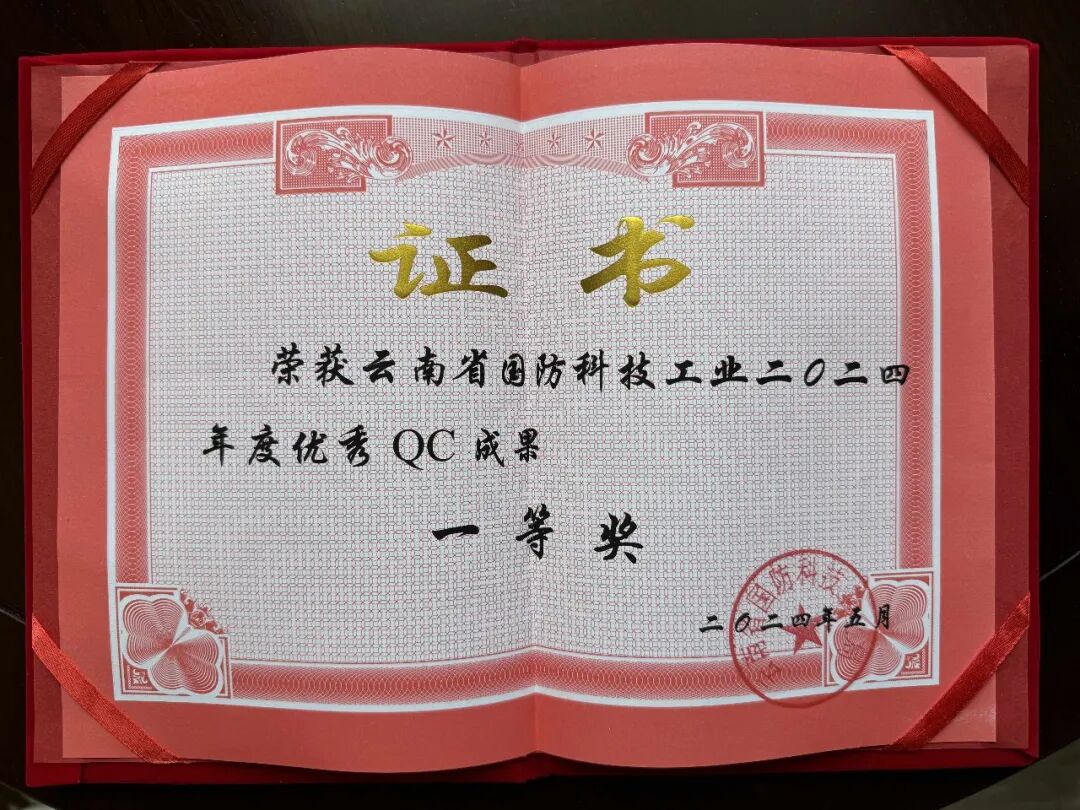 证书
荣获云南省国防科技工业二〇二四
年度优秀 QC 成果
一等奖
二〇二四年五月
云南省国防科技